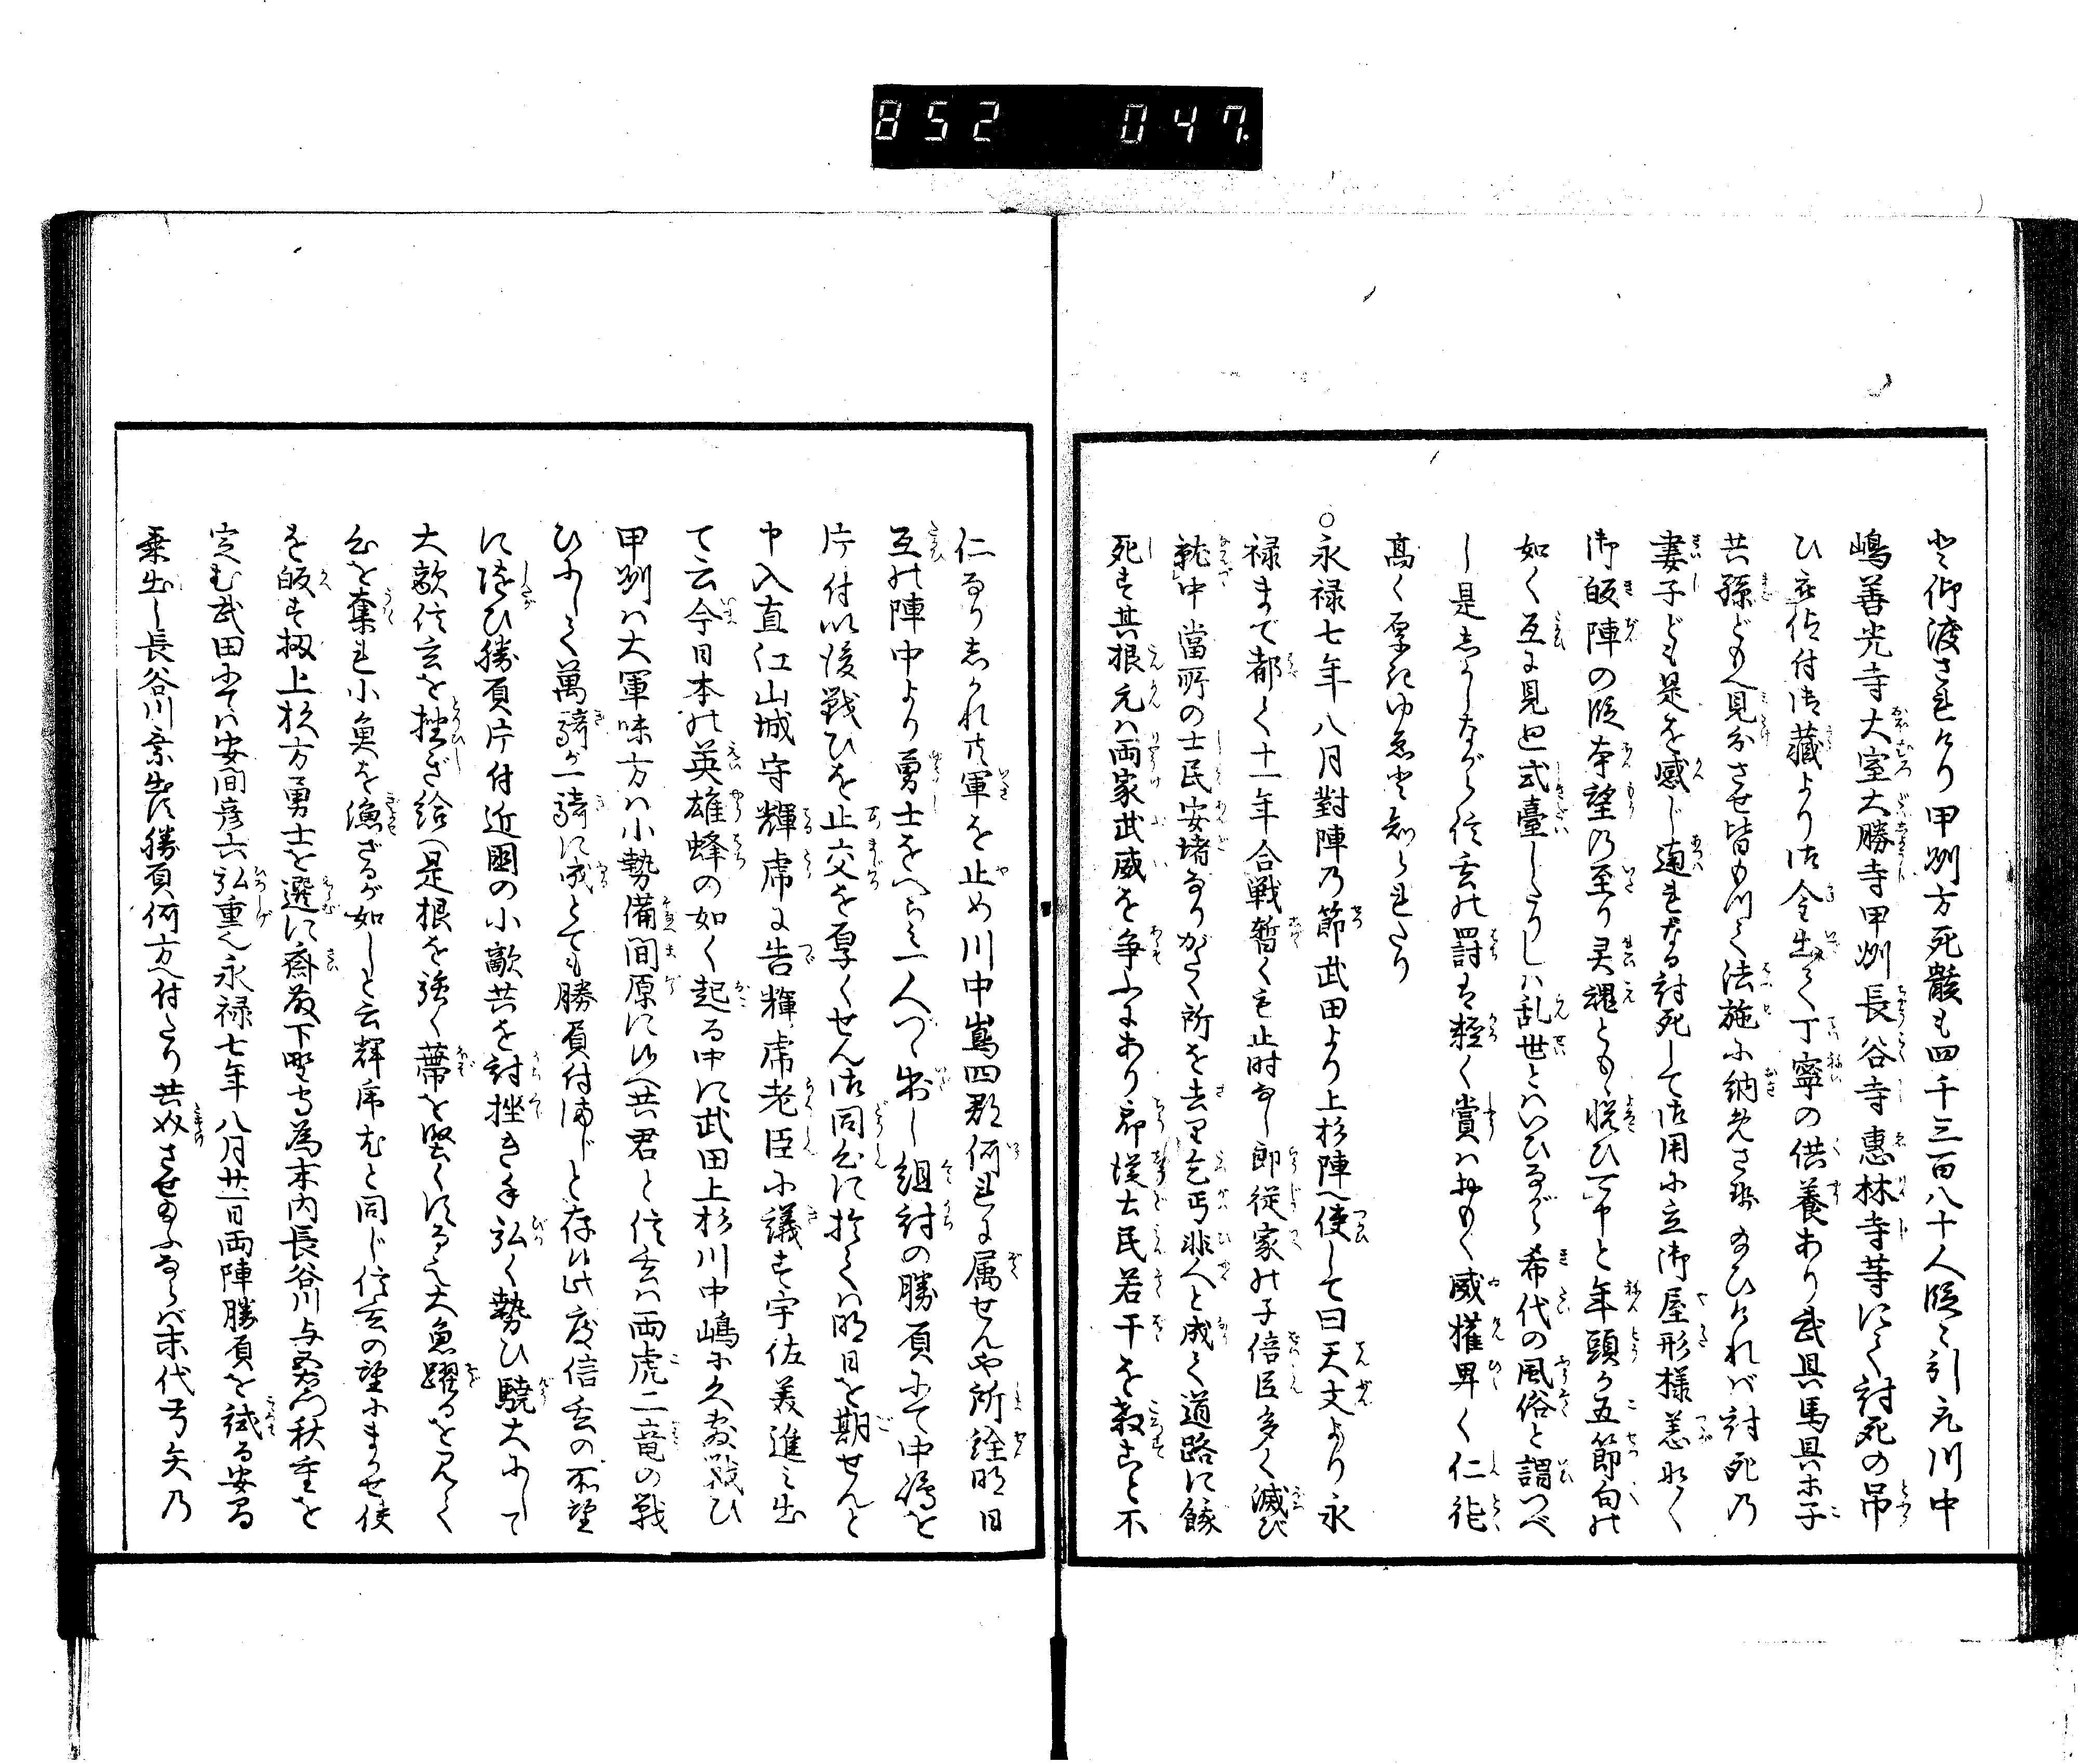 852 047.
と仰渡されけり甲州方死骸も四千三百八十人段々引元川中
嶋善光寺大室大勝寺甲州長谷寺恵林寺等にて討死の吊
ひ被仰付御蔵より御金出て丁寧の供養あり武具馬具ホ子
共孫どもへ見分させ皆もつて法施に納めさせ給ひければ討死乃
妻子ども是を感じ遖れなる討死して御用に立御屋形様恙なく
御皈陣の段本望乃至り霊魂とも悦ひ可申と年頭五節句の
如く互に見廻式臺したりしハ乱世とハいひながら希代の風俗と謂つべ
し是しかしながら信玄の罸も軽く賞ハおもく威権卑く仁徳
高く厚きゆゑと知られたり
○永禄七年八月對陣乃節武田より上杉陣へ使して曰天文より永
禄まで都て十一年合戦暫くも止時なし即従家の子倍臣多く滅び
就中當所の士民安堵なりがたく所を去りて乞丐非人と成て道路に餓
死す其根元ハ両家武威を争ふにあり郎従士民若干を殺こと不
仁なりしかれ共軍を止め川中嶌四郡何れに属せんや所詮明日
互の陣中より勇士をえらみ一人づゝ出し組討の勝負にて中嶋を
片付以後戦ひを止交を厚くせん御同心に於てハ明日を期せんと
申入直江山城守輝虎に告輝虎老臣に議す宇佐美進み出
て云今日本の英雄蜂の如く起る中に武田上杉川中嶋に久敷戦ひ
甲州ハ大軍味方ハ小勢備間原に候へ共君と信玄ハ両虎二竜の戦
ひにして萬騎が一騎に成とても勝負付まじと存候此度信玄の所望
に随ひ勝負片付近国の小敵共を討挫き手弘く勢ひ驍大にして
大敵信玄を挫ぎ給へ是根を強く蔕を堅くにする也大魚躍るを見て
心を奪れ小魚を漁ざるが如しと云輝虎尤と同じ信玄の望にまかせ使
を皈す扨上杉方勇士を選に斎藤下野守為末内長谷川与五左衛門秋重を
定む武田にてハ安間彦六弘重也永禄七年八月廿一日両陣勝負を試る安間
乗出し長谷川乗出す勝負何方へ付たり共奴させ給ふならば末代弓矢乃